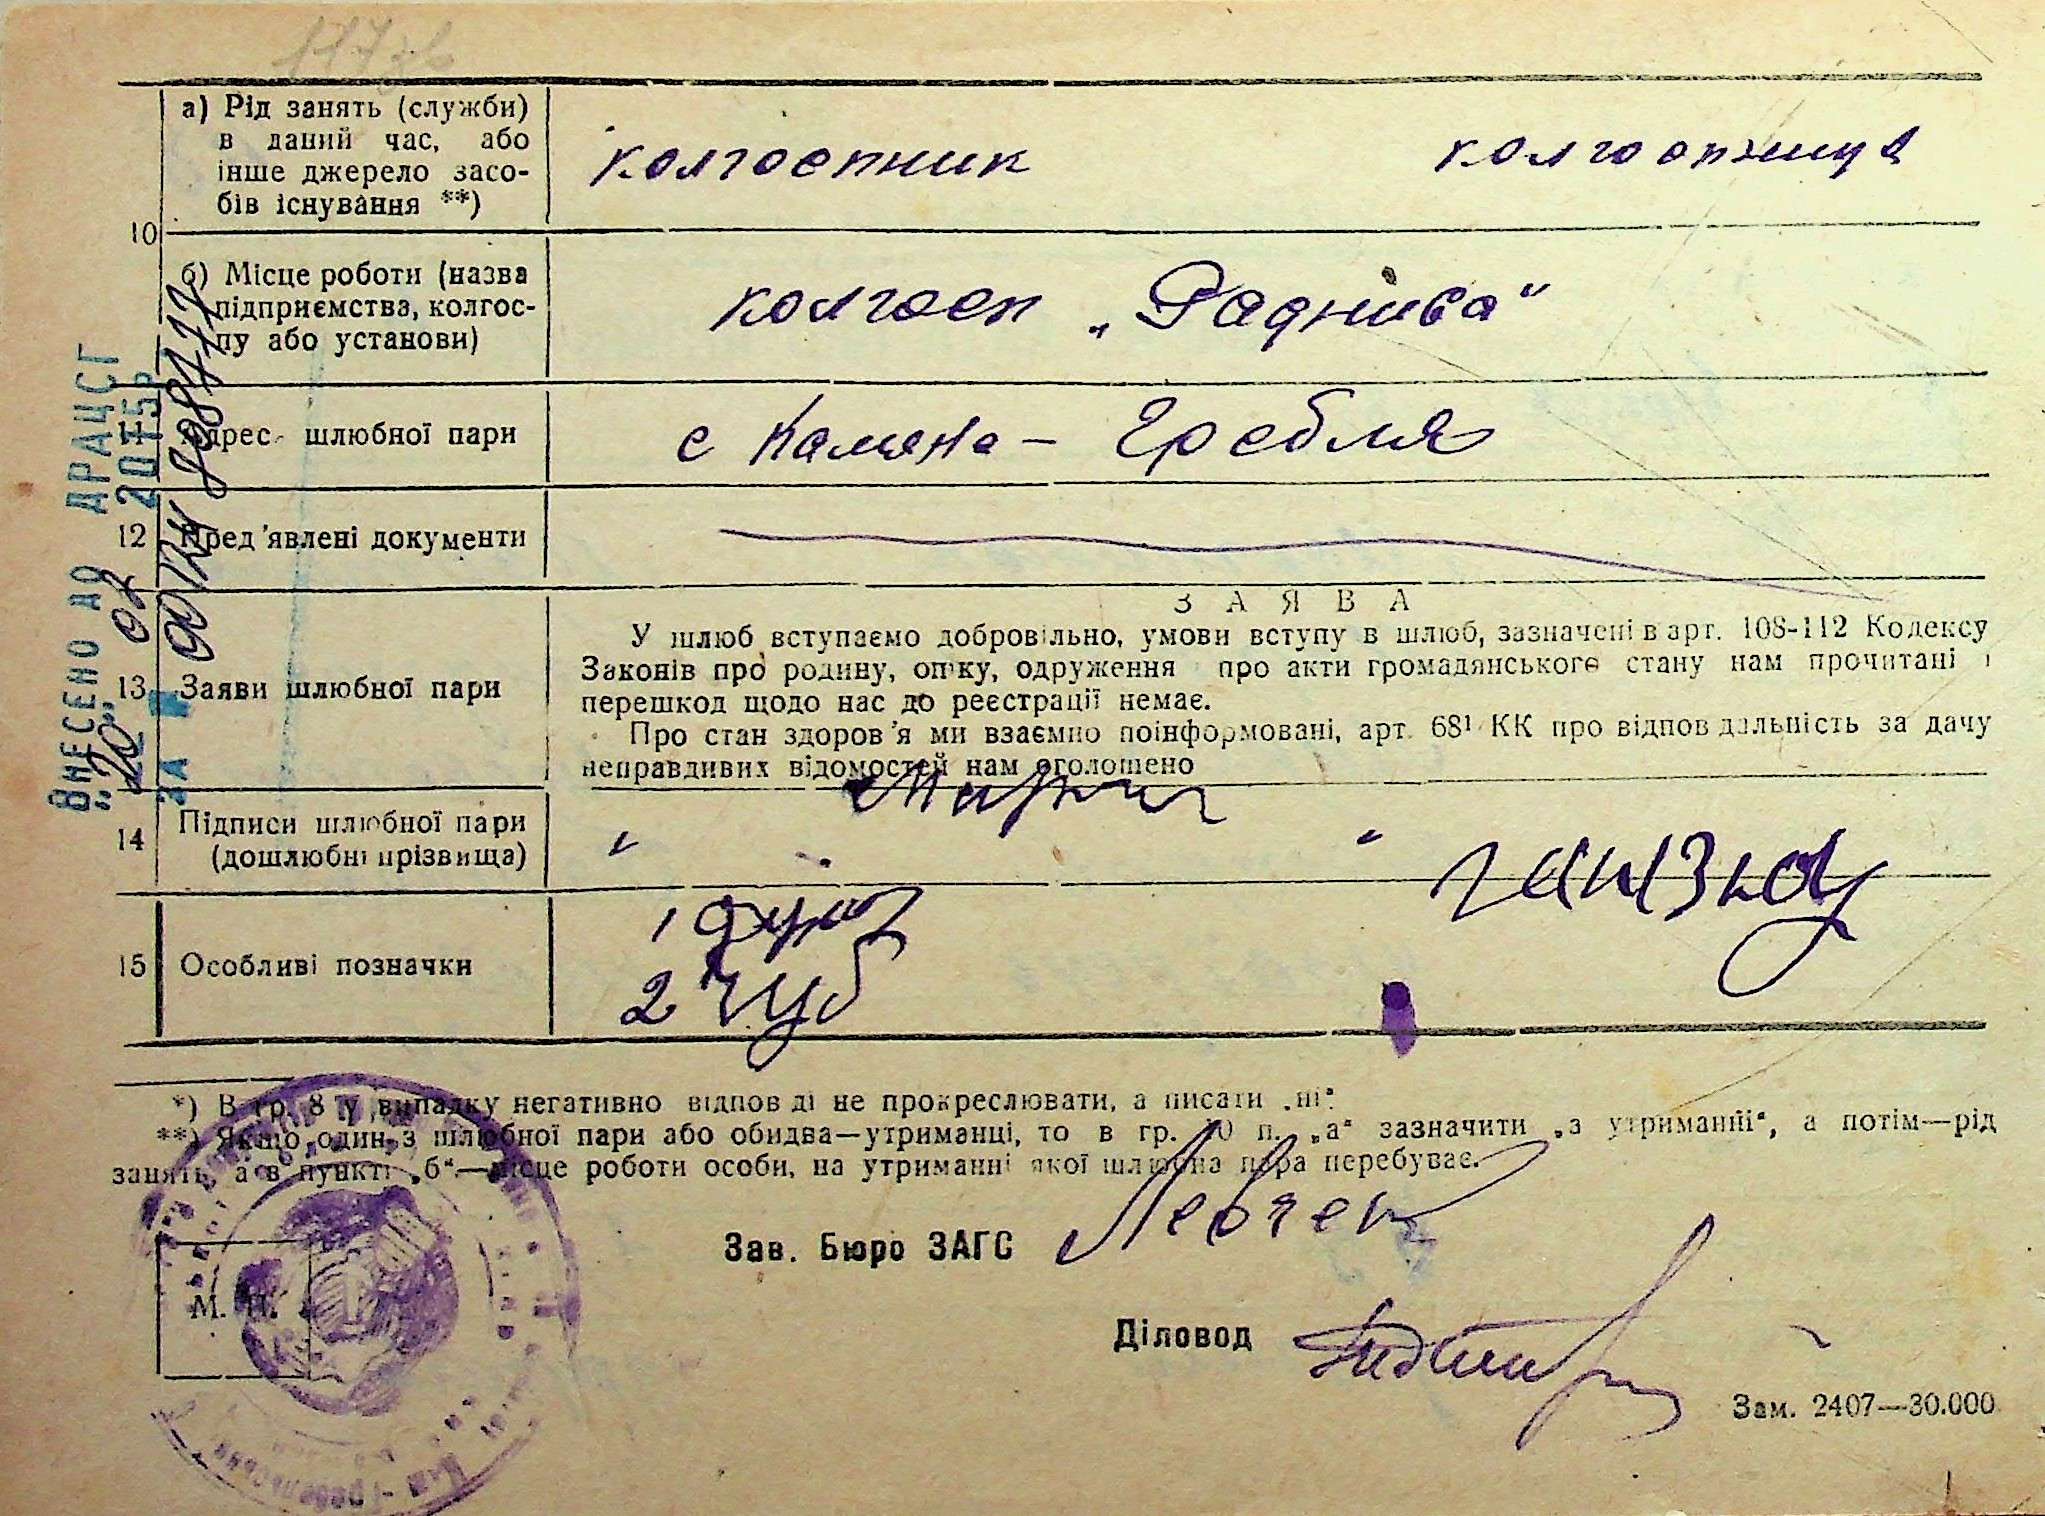 а) Рід занять (служби)
в даний час, або
інше джерело засо-
бів існування **)
колгоспник колгоспниця
10
б) Місце роботи (назва
підприємства, колгос-
пу або установи)
колгосп „Раднива“
11 Адрес шлюбної пари
с Камяна - Гребля
12 Пред'явлені документи
ЗАЯВА
У шлюб вступаємо добровільно, умови вступу в шлюб, зазначені в арт. 108-112 Кодексу
Законів про родину, опіку, одруження про акти громадянського стану нам прочитані і
перешкод щодо нас до реєстрації немає.
13 Заяви шлюбної пари
Про стан здоров'я ми взаємно поінформовані, арт. 68¹ КК про відповідальність за дачу
неправдивих відомостей нам оголошено
14 Підписи шлюбної пари
(дошлюбні прізвища)
15 Особливі позначки
1
2
ВНЕСЕНО ДО ДРАЦСГ
"20" 02 2015р
ЗА №
*) В гр. 8 у випадку негативно відповіді не прокреслювати, а писати „ні“.
**) Якщо один з шлюбної пари або обидва—утриманці, то в гр. 10 п. „а“ зазначити „з утриманні“, а потім—рід
занять, а в пункті „б“—місце роботи особи, на утриманні якої шлюбна пара перебуває.
Зав. Бюро ЗАГС
М. П.
Діловод
Зам. 2407—30.000